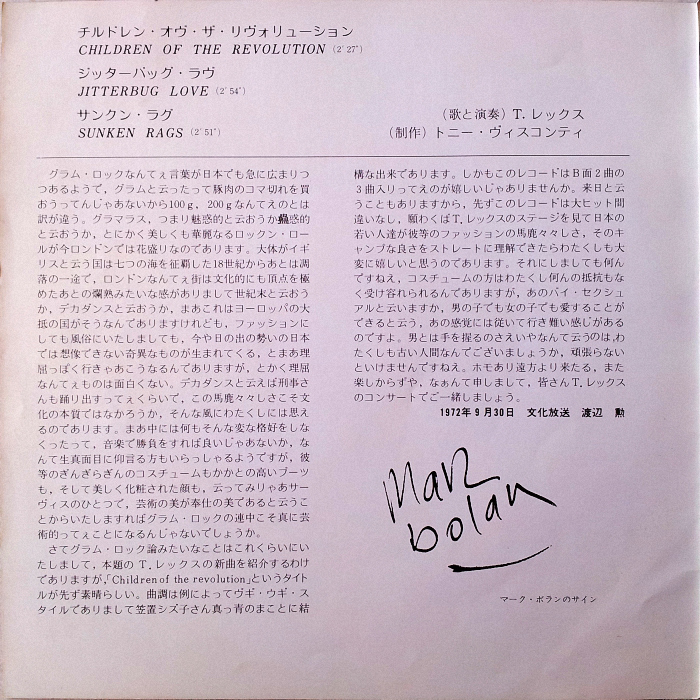 チルドレン・オヴ・ザ・リヴォリューション
CHILDREN OF THE REVOLUTION (2'27")
ジッターバッグ・ラヴ
JITTERBUG LOVE (2'54")
サンクン・ラグ
SUNKEN RAGS (2'51")
(歌と演奏) T. レックス
(制作) トニー・ヴィスコンティ
グラム・ロックなんてぇ言葉が日本でも急に広まりつ
つあるようで, グラムと云ったって豚肉のコマ切れを買
おうってんじゃあないから100g, 200gなんてえのとは
訳が違う。グラマラス, つまり魅惑的と云おうか蠱惑的
と云おうか, とにかく美しくも華麗なるロックン・ロー
ルが今ロンドンでは花盛りなのであります。大体がイギ
リスと云う国は七つの海を征覇した18世紀からあとは凋
落の一途で, ロンドンなんてぇ街は文化的にも頂点を極
めたあとの爛熟みたいな感がありまして世紀末と云おう
か, デカダンスと云おうか, まあこれはヨーロッパの大
抵の国がそうなんでありますけれども, ファッションに
しても風俗にいたしましても, 今や日の出の勢いの日本
では想像できない奇異なものが生まれてくる, とまあ理
屈っぽく行きゃあこうなるんでありますが, とかく理屈
なんてぇものは面白くない。デカダンスと云えば刑事さ
んも踊り出すってぇくらいで, この馬鹿々々しさこそ文
化の本質ではなかろうか, そんな風にわたくしには思え
るのであります。まあ中には何もそんな変な格好をしな
くったって, 音楽で勝負をすれば良いじゃあないか, な
んて生真面目に仰言る方もいらっしゃるようですが, 彼
等のぎんぎらぎんのコスチュームもかかとの高いブーツ
も, そして美しく化粧された顔も, 云ってみりゃあサー
ヴィスのひとつで, 芸術の美が奉仕の美であると云うこ
とからいたしますればグラム・ロックの連中こそ真に芸
術的ってぇことになるんじゃないでしょうか。
さてグラム・ロック論みたいなことはこれくらいにい
たしまして, 本題の T. レックスの新曲を紹介するわけ
でありますが,「Children of the revolution」というタイト
ルが先ず素晴らしい。曲調は例によってヴギ・ウギ・ス
タイルでありまして笠置シズ子さん真っ青のまことに結
構な出来であります。しかもこのレコードはB面2曲の
3曲入りってえのが嬉しいじゃありませんか。来日と云
うこともありますから, 先ずこのレコードは大ヒット間
違いなし, 願わくばT. レックスのステージを見て日本の
若い人達が彼等のファッションの馬鹿々々しさ, そのキ
ャンプな良さをストレートに理解できたらわたくしも大
変に嬉しいと思うのであります。それにしましても何ん
ですねえ, コスチュームの方はわたくし何んの抵抗もな
く受け容れられるんでありますが, あのバイ・セクシュ
アルと云いますか, 男の子でも女の子でも愛することが
できると云う, あの感覚には従いて行き難い感じがある
のですよ。男とは手を握るのさえいやなんて云うのは,わ
たくしも古い人間なんでございましょうか, 頑張らない
といけませんですねえ。ホモあり遠方より来たる, また
楽しからずや, なぁんて申しまして, 皆さんT. レックス
のコンサートでご一緒しましょう。
1972年9月30日 文化放送 渡辺 勲
Marc
bolan
マーク・ボランのサイン